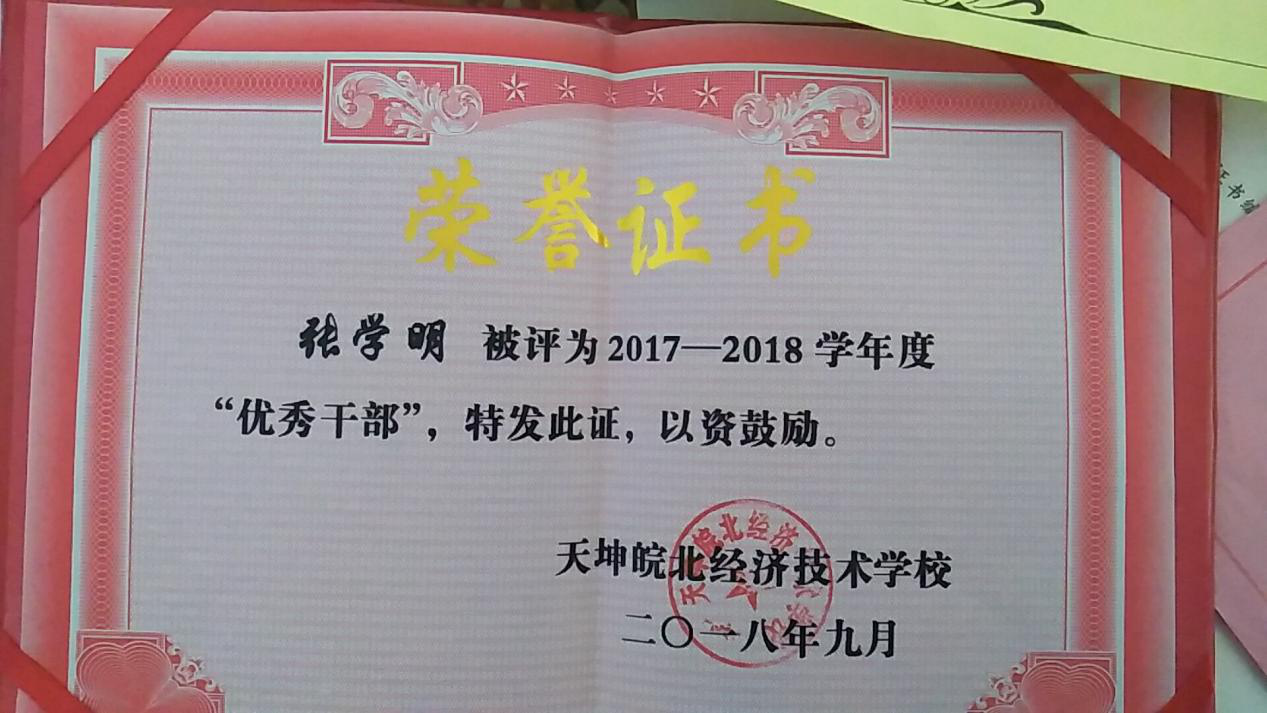 荣誉证书
张学明 被评为2017—2018学年度
“优秀干部”，特发此证，以资鼓励。
天坤皖北经济技术学校
二〇一八年九月
证书编